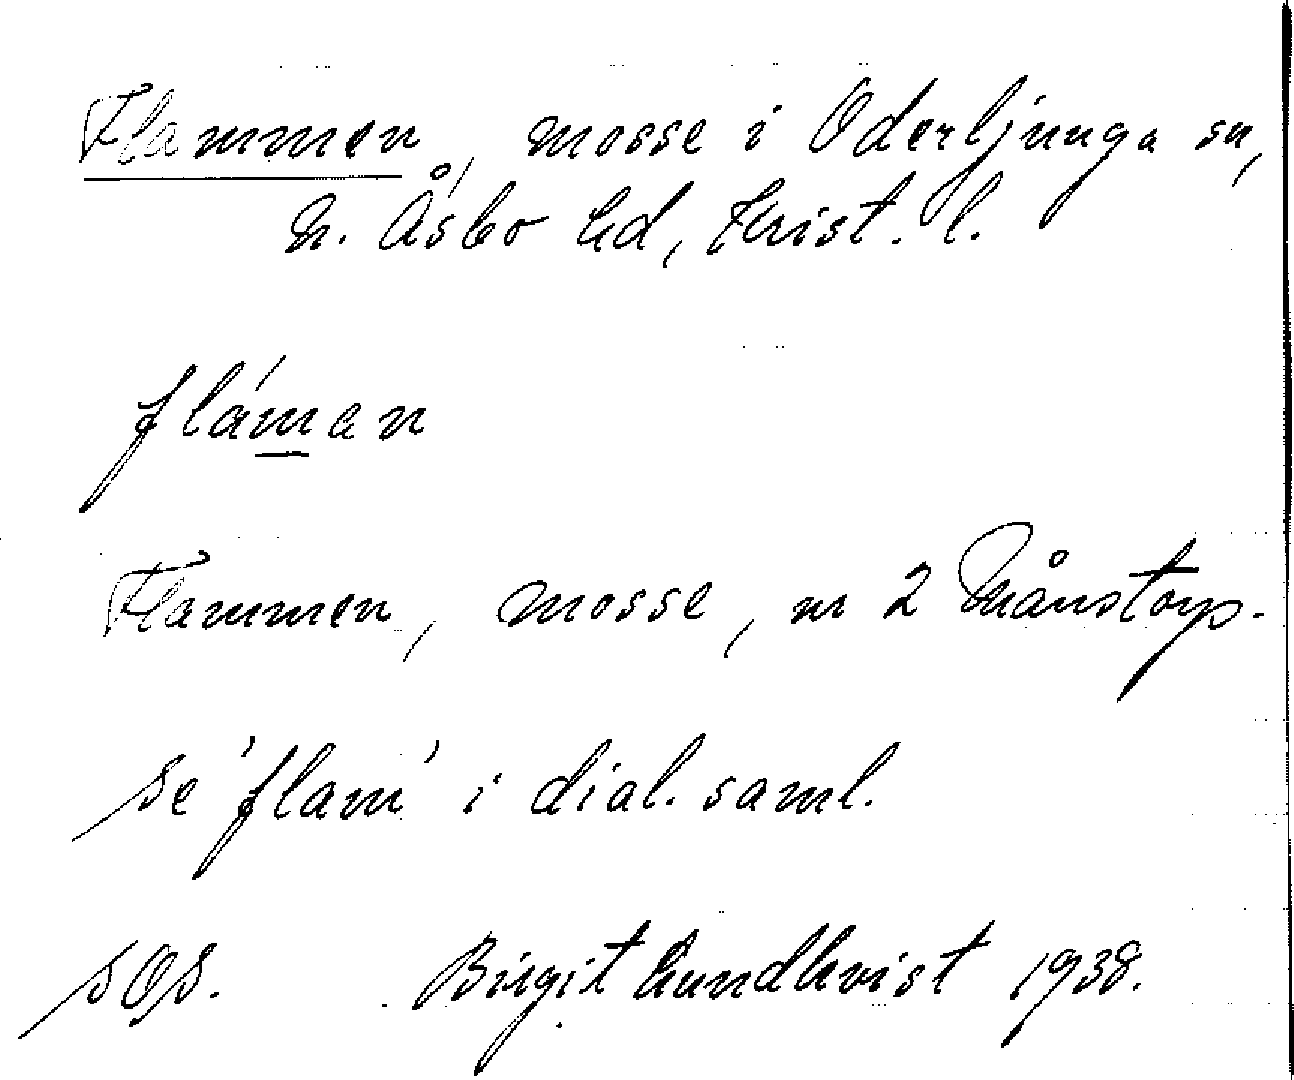 Flammen, mosse i Oderljunga sn,
N. Åsbo hd, Krist. l.
flámen
Flammen, mosse, nr 2 Månstorp.
se 'flam' i dial. saml.
Birgit Lundkvist 1938.